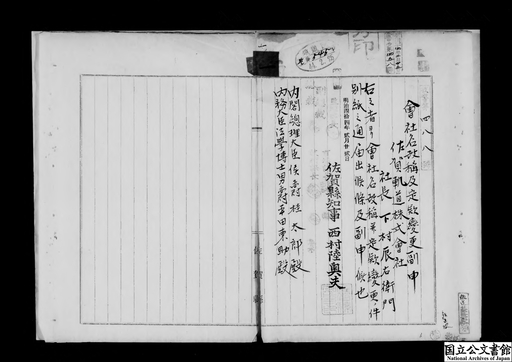 四八八
會社名改稱及定款變更副申
佐賀軌道株式會社
社長 下村辰右衛門
右之者ヨリ會社名改稱并定款變更ノ件
別紙之通届出候條及副申候也
明治四拾四年 貳月廿 貳日
佐賀縣知事 西村陸奥夫
内閣總理大臣侯爵桂太郎殿
内務大臣法學博士男爵平田東助殿
佐賀縣
国立公文書館
National Archives of Japan